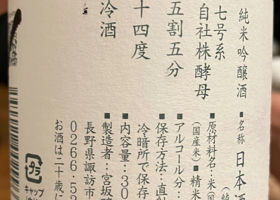 純米吟醸酒
七号系
自社株酵母
五割五分
十四度
冷酒
■名称 日本酒
■原材料名：米(
(国産米)
■精米
■アルコール分：
■保存方法：直射
冷暗所で保存
■内容量：30
■製造者：宮坂
長野県諏訪市
0266-5
お酒は二十歳に
プラ
キャップ